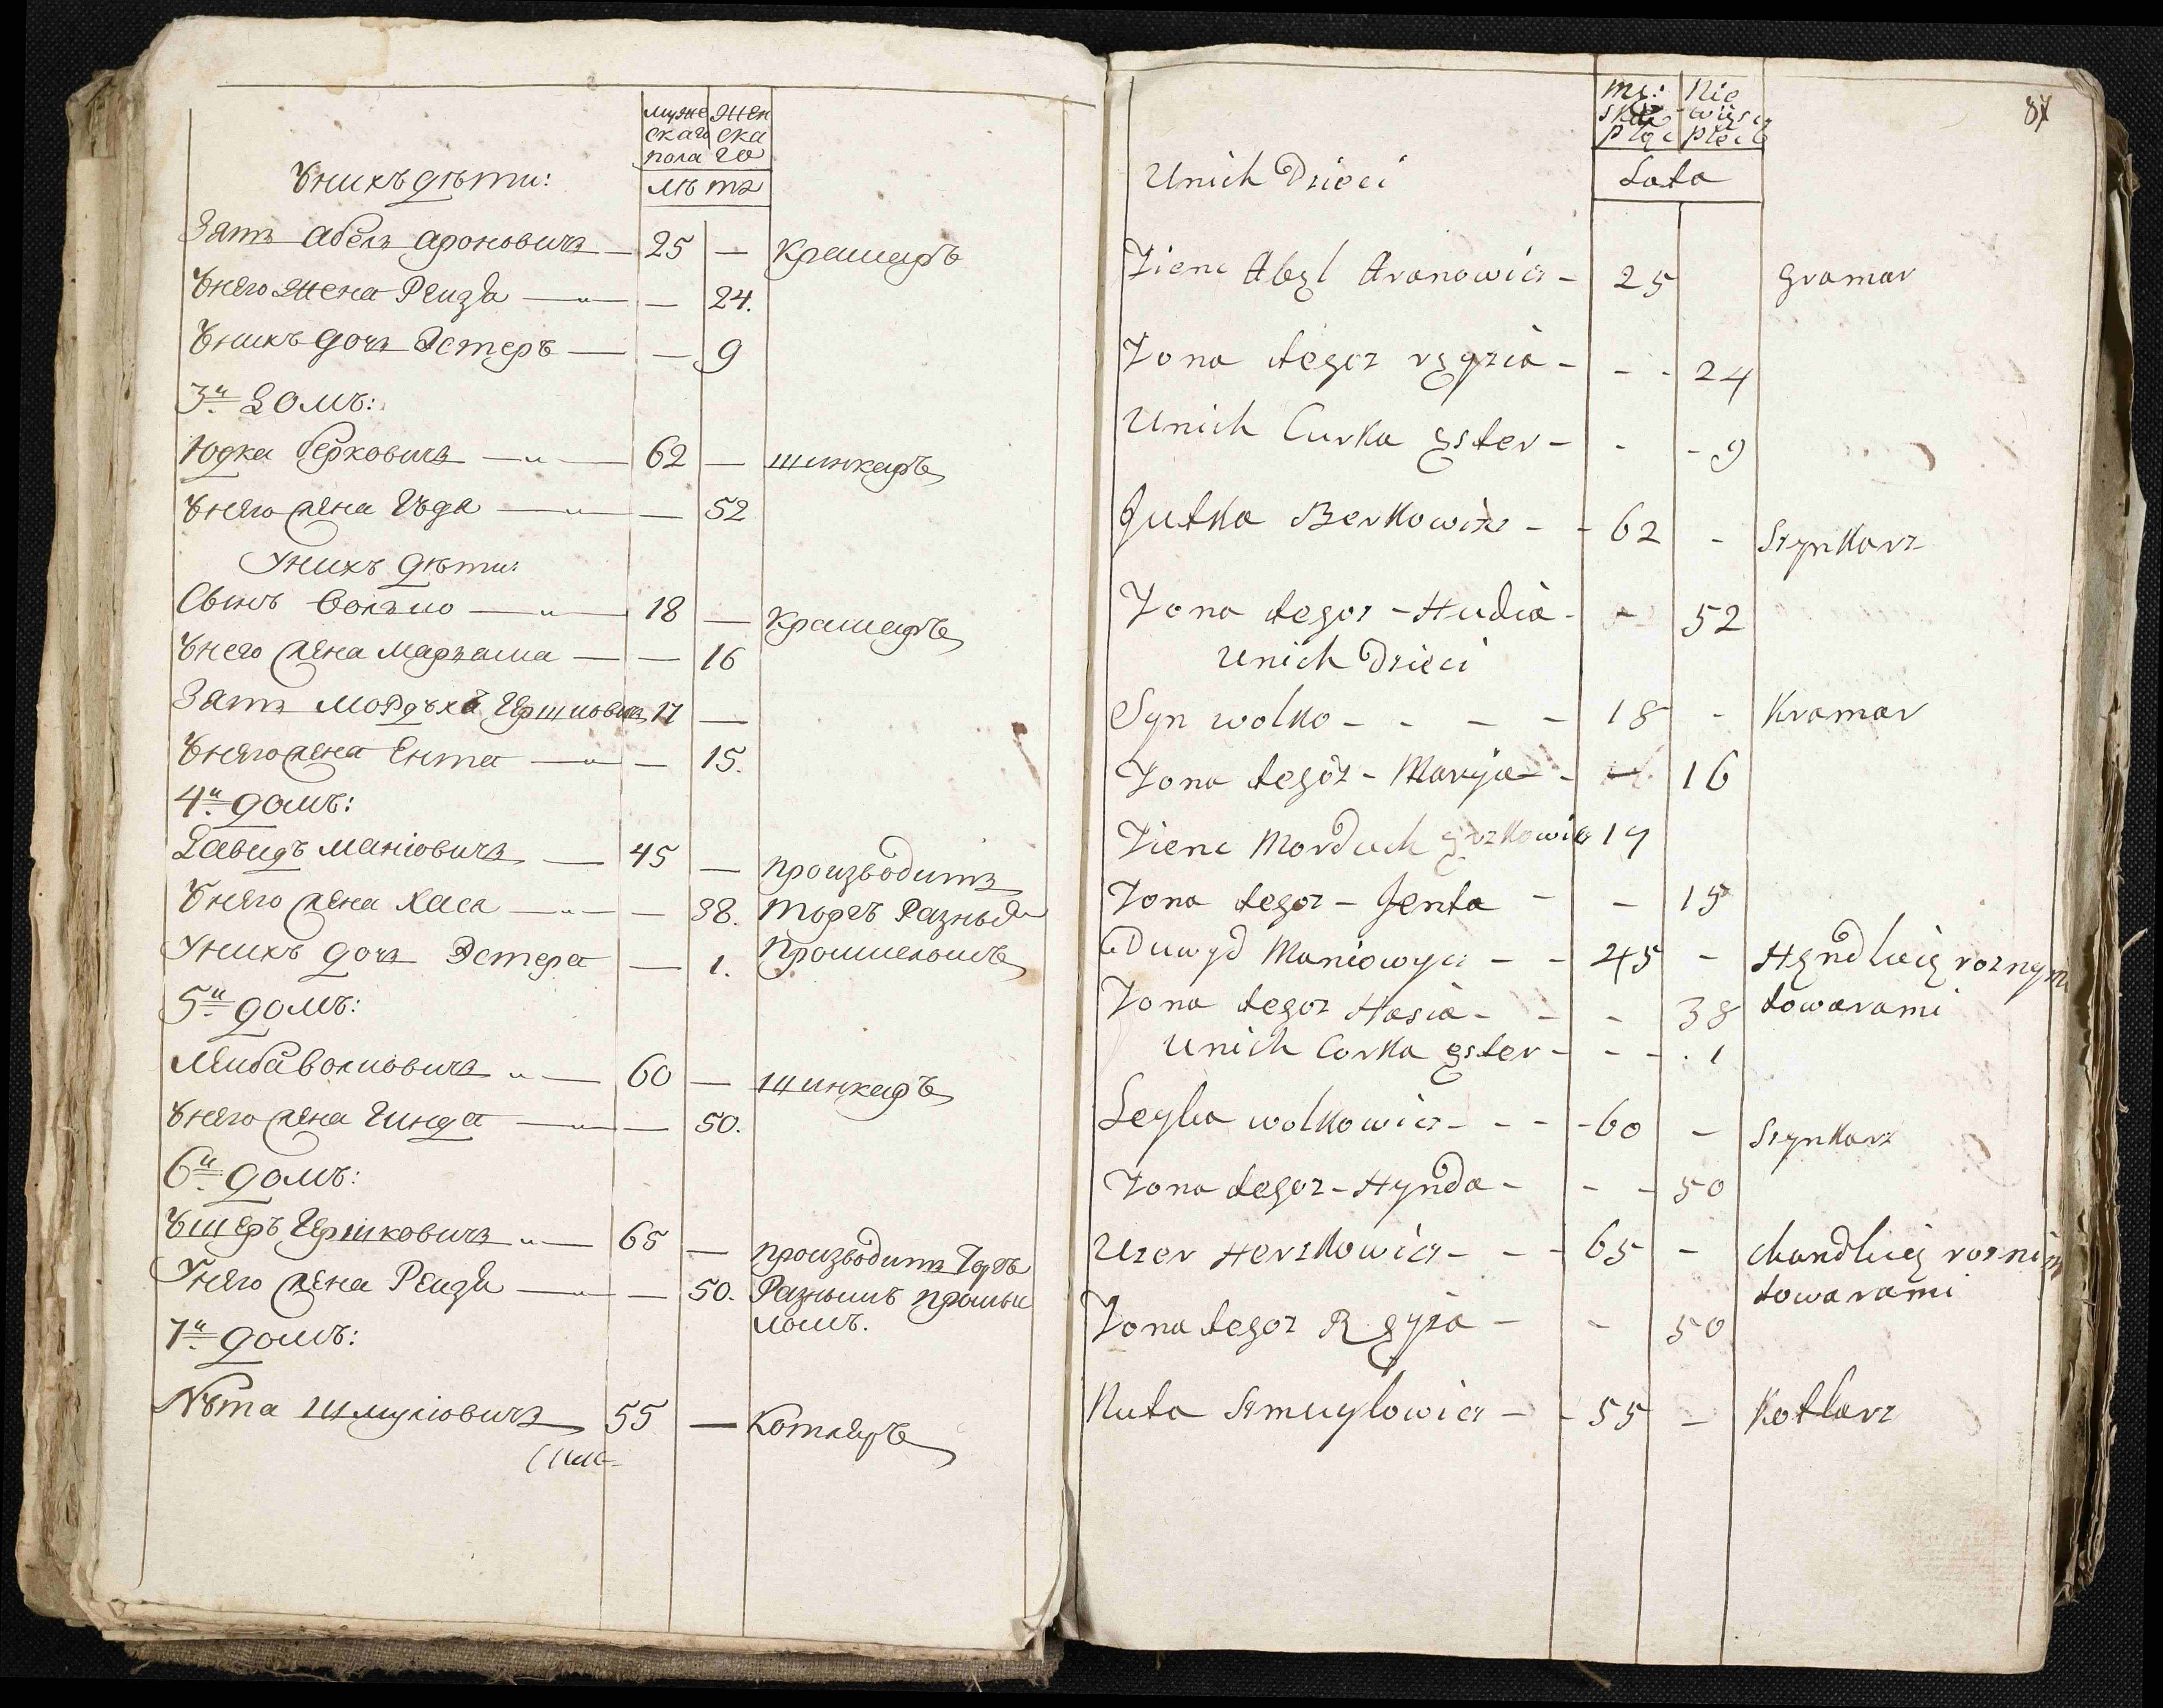 муже жен
скаго ска
пола го
лѣтъ
Унихъ дѣти:
Зять Абель Ароновичъ — 25 — Крамаръ
Унего жена Рейзя — — 24.
Унихъ дочь Эстеръ — — 9
3й домъ:
Юдка Берковичъ — 62 — шинкаръ
Унего жена Гудя — — 52
Унихъ дѣти:
Сынъ Волько — 18 — Крамаръ
Унего жена Марьяма — — 16
Зять Мордъха Гершковичъ 17 —
Унего жена Ента — — 15.
4й домъ:
Давидъ Маніовичъ — 45 — производитъ
Унего жена Хася — — 38. торгъ Разными
Унихъ дочь Эстера — 1. Промысломъ
5й домъ:
Лейба Волковичъ — 60 — шинкаръ
Унего жена Гинда — — 50.
6й домъ:
Ушеръ Гершковичъ — 65 — производитъ Торгъ
Унего жена Рейзя — — 50. Разнымъ промысломъ.
7й домъ:
Нута Шмуловичъ 55 — Котляръ
87
Mę: Nie
skiey wieśćiey
płci płcib
Lata
Unich Dzieci
Zienc Abel Aronowicz - 25 gramar
Zona tegoz reyzia - - - 24
Unich Curka ester - - - 9
Jutka Berkowicz - - 62 - Szynkarz
Zona tegoz - Hudia - - 52
Unich Dzieci
Syn wolko - - - - 18 - Kramar
Zona tegoz - Maryia - - 16
Zienc Morduch Herzkowicz 17
Zona tegoz - Jenta - - 15
Duwyd Maniowycz - - 45 - Handluie roznym
Zona tegoz Hasia - - - 38 towarami
Unich Corka ester - - - . 1
Leyba wolkowicz - - - 60 - Szynkarz
Zona tegoz - Hynda - - - 50
Uzer Herzkowicz - - - 65 - chandluie roznim
towarami
Zona tegoz Reyza - - 50
Nuta Szmuylowicz - - 55 - Kotlarz